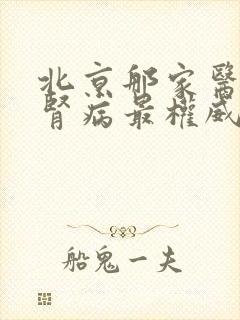 北京那家醫
腎病最權威
船鬼一夫